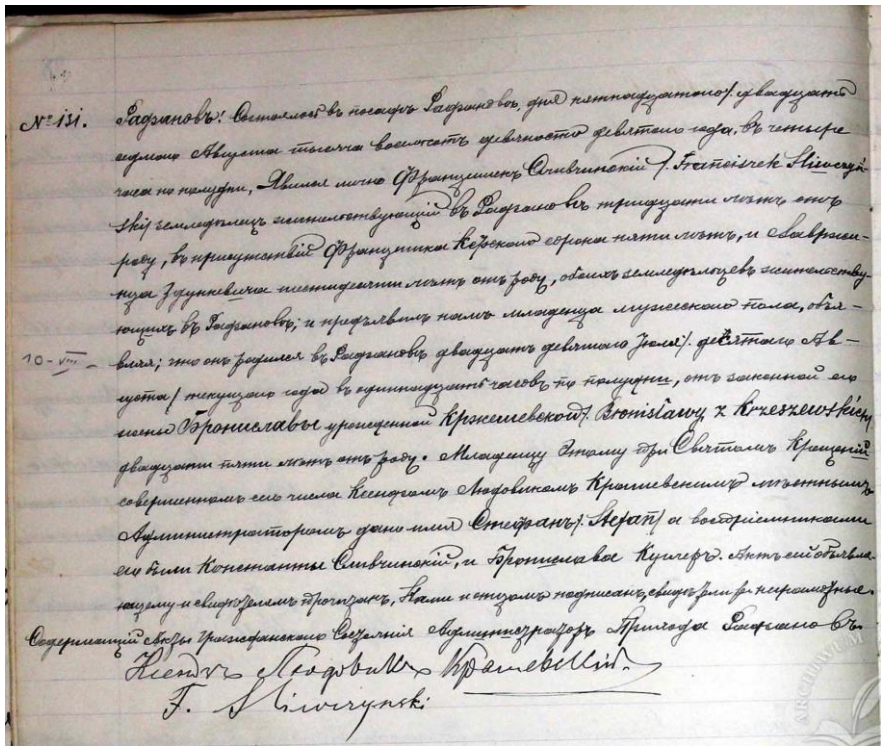 № 151. Радзановъ! Состоялось въ посадѣ Радзановѣ, дня пятнадцатого/ двадцать
седмого Августа тысяча восемсотъ девяносто девятаго года, въ четыре
часа по полудни, Явился лично Францишекъ Сливчинскій /Franciszek Sliwczyń-
ski/ земледѣлецъ жительствующій въ Радзановѣ тридцати лѣтъ отъ
роду, въ присутствіи Францишка сорока пяти лѣтъ, и Лаврен-
шестидесяти лѣтъ отъ роду, обоихъ земледѣльцевъ жительству-
ющихъ въ Радзановѣ; и предъявилъ намъ младенца мужескаго пола, объя-
10-VIII- вляя; что онъ родился въ Радзановѣ двадцать девятаго Іюля/ десятаго Ав-
густа/ текущаго года въ одиннадцать часовъ по полудни, отъ законной его
жены Брониславы урожденной Кржешевской/ Bronisławy z Krzeszewskich/
двадцати пяти лѣтъ отъ роду. Младенцу этому при Святомъ Крещеніи
совершенномъ сего числа Ксендзомъ Людовикомъ Крашевскимъ мѣстнымъ
Администраторомъ дано имя Стефанъ/ Stefan/ а воспріемниками
его были Константы Сливчинскій, и Брониславa Куглеръ. Актъ сей объявля-
ющему и свидѣтелямъ прочитанъ, Нами и отцомъ подписанъ, свидѣтели неграмотные.
Содержащій Акты Гражданскаго Состоянія Администраторъ Прихода Радзановъ
Ксендзъ Людовикъ Крашевскій.
F. Sliwczynski
ARCHIWUM